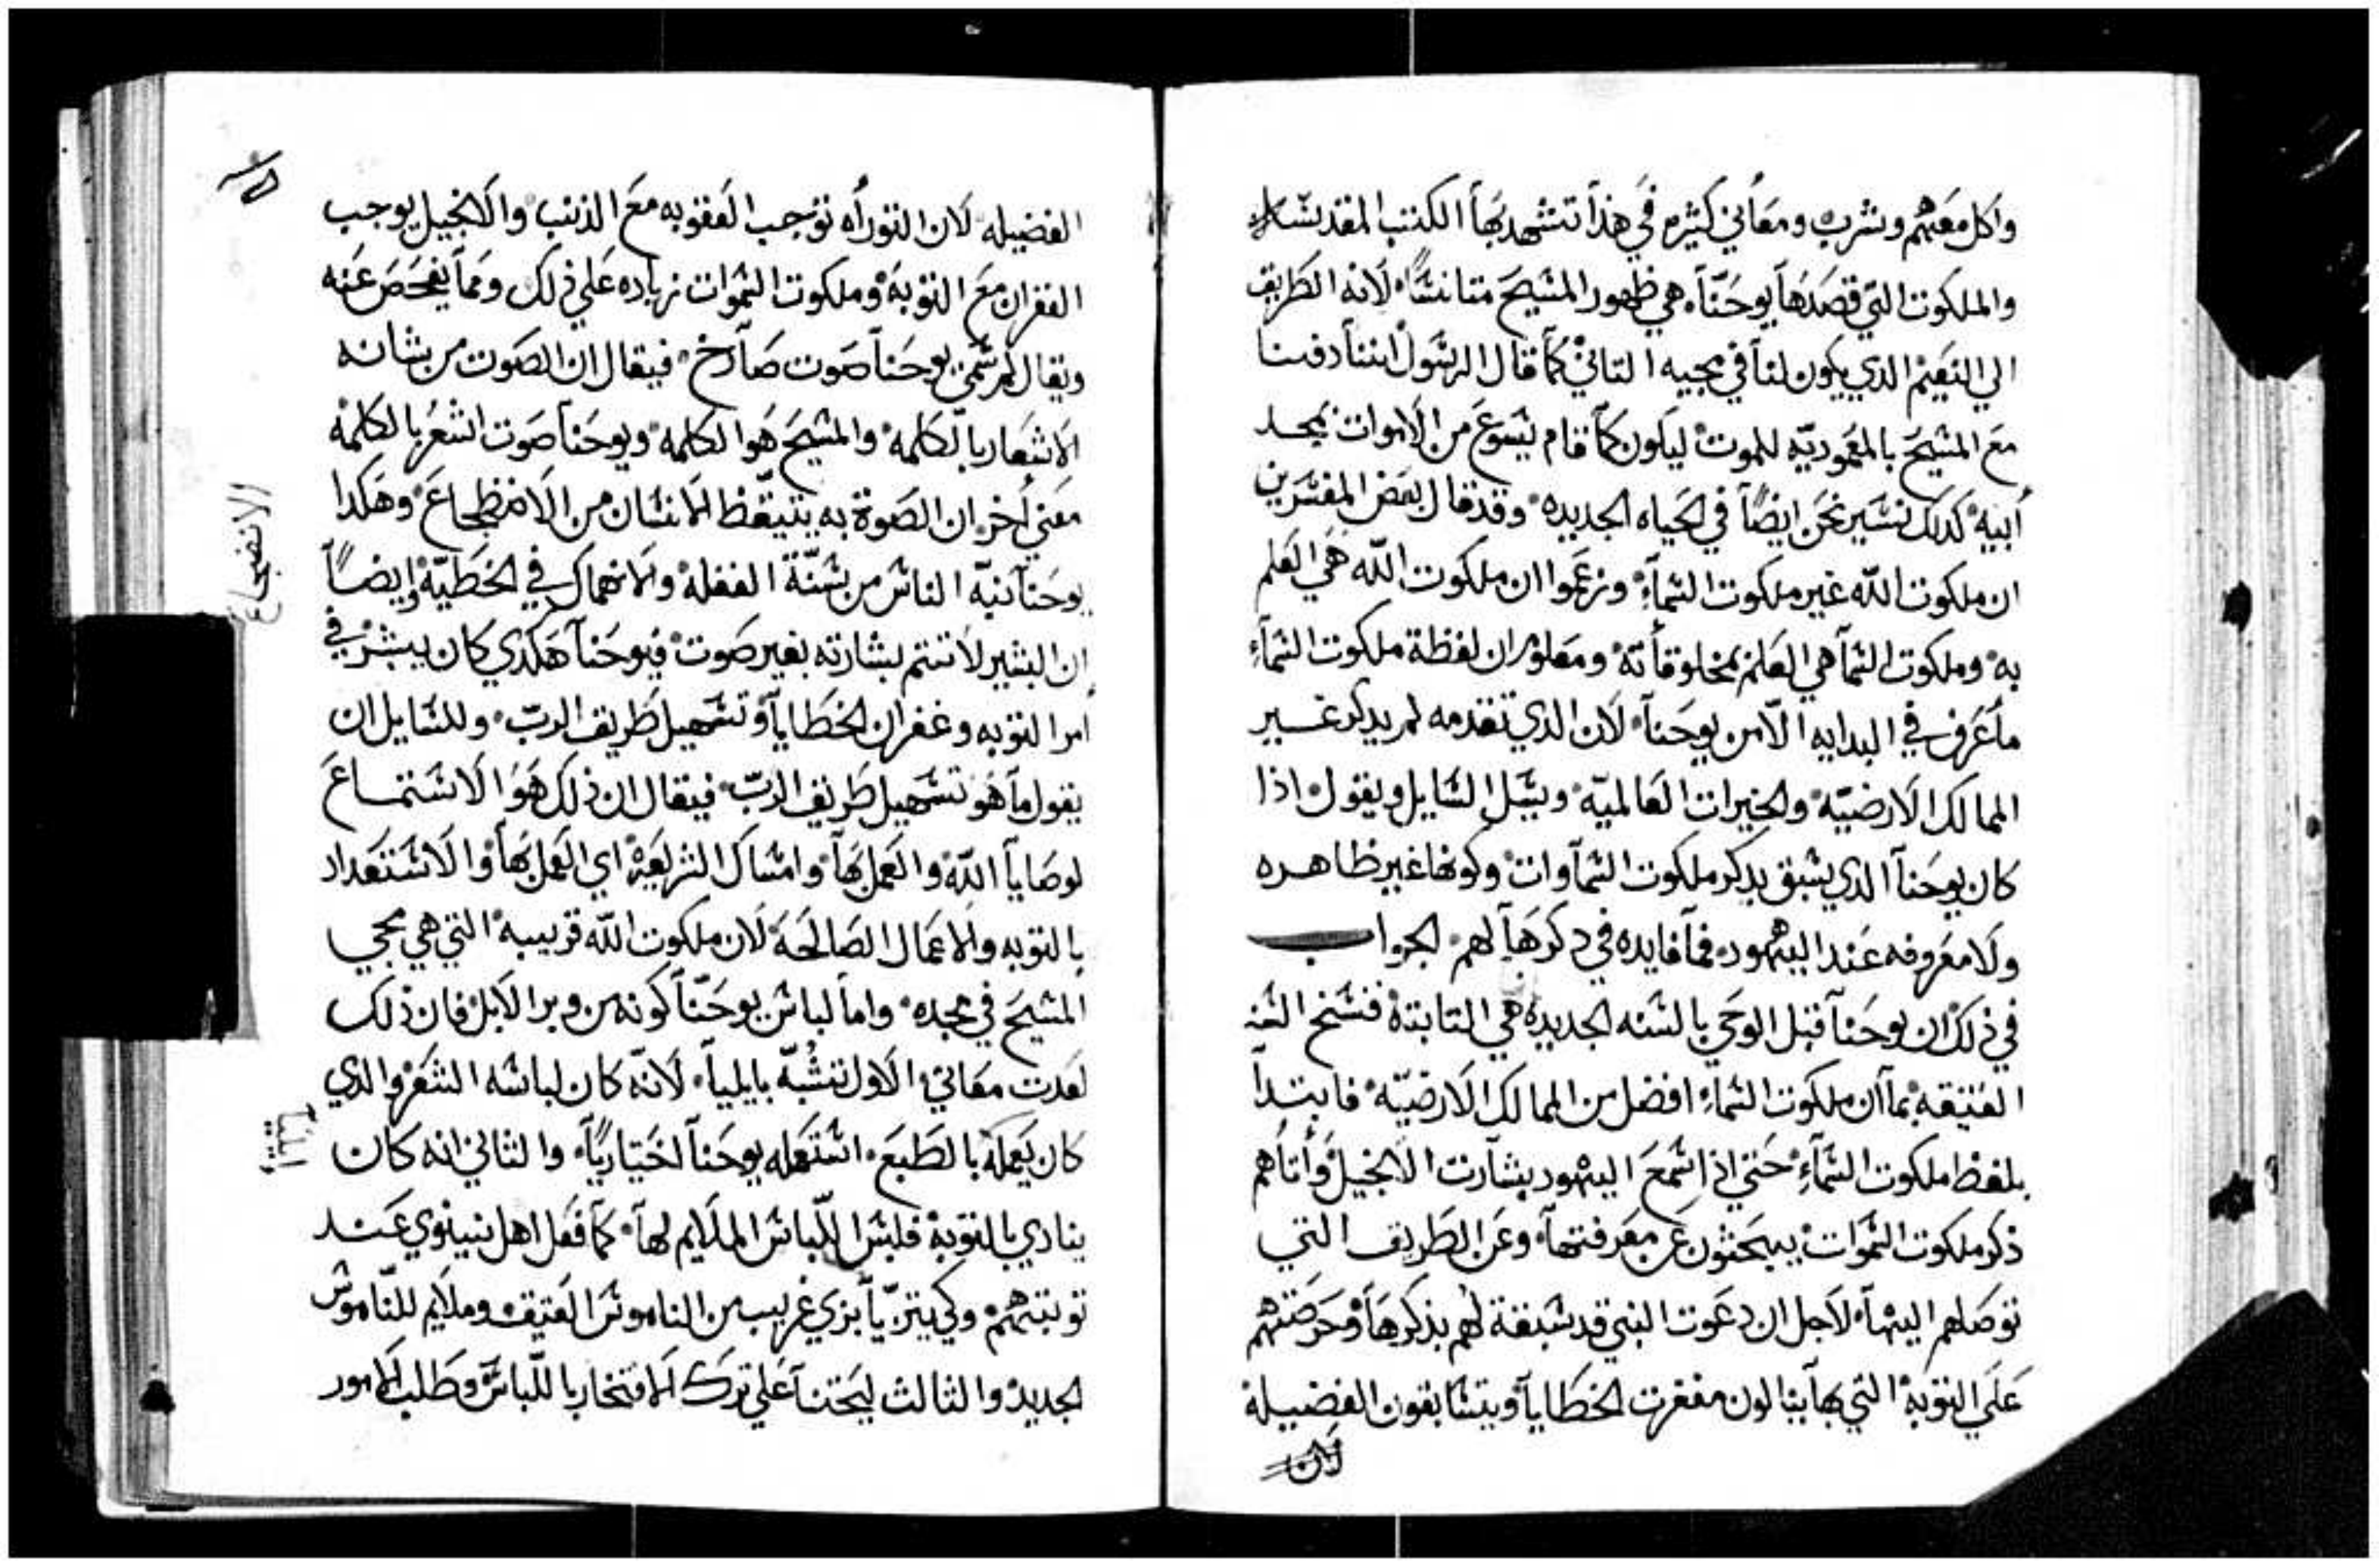 واكل معهم وشرب ومعاني كثيره في هذا تشهد بها الكتب المقدسه
والملكوت التي قصدها يوحنا هي ظهور المسيح متانسًا لانه الطريق
الي النعيم الذي يكون لنا في مجيه الثاني كما قال الرسول اننا دفنا
مع المسيح بالمعموديّه للموت ليكون كما قام يسوع من الاموات بمجد
أبيه كذلك نسير نحن ايضًا في الحياه الجديده وقد قال بعض المفسرين
ان ملكوت الله غير ملكوت السماء وزعموا ان ملكوت الله هي العلم
به وملكوت السما هي العلم بمخلوقاته ومعلوم ان لفظة ملكوت السماء
ما عرف في البدايه الّا من يوحنا لان الدي تقدمه لم يدكر غير
الممالك الارضيّه والخيرات العالميّه ويسل السايل ويقول اذا
كان يوحنا الدي يسبق يدكر ملكوت السماوات وكونها غير ظاهره
ولا معروفه عند اليهود فما فايده في دكرها لهم الجواب
في ذلك ان يوحنا قبل الوحي بالسنه الجديده هي التابتة فنسخ السنه
العتيقه بما ان ملكوت السماء افضل من الممالك الارضيّه فابتدا
بلفظ ملكوت السماء حتي اذا سمع اليهود بشارت الانجيل وأتاهم
ذكر ملكوت السموات يبحثون عن معرفتها وعن الطريق التي
توصلهم اليها لاجل ان دعوت النبي قد سبقة لهم بذكرها وحرصتهم
علي التوبة التي بها ينالون مغفرت الخطايا ويتسابقون الفضيلة
لان
الفضيله لان التوراه توجب العقوبه مع الذنب والانجيل يوجب
الغفران مع التوبة وملكوت السموات زياده علي ذلك ومما يفحص عنه
ويقال لم سمي يوحنا صوت صارخ فيقال ان الصوت من شانه
الاشعار بالكلمه والمسيح هو الكلمه ويوحنا صوت اشعر بالكلمة
معني اخر ان الصوة به يتيقظ الانسان من الاضطجاع وهكدا
يوحنا نبّه الناس من سنّة الغفلة والانهماك في الخطيّة وايضًا
ان البشير لا تتم بشارته بغير صوت فيوحنا هكدي كان يبشر في
امر التوبه وغفران الخطايا وتسهيل طريق الربّ وللسايل ان
يقول ما هو تسهيل طريق الربّ فيقال ان ذلك هو الاستماع
لوصايا اللّه والعمل بها وامساك الشريعة اي العمل بها والاستعداد
بالتوبه والاعمال الصالحة لان ملكوت الله قريبه التي هي مجي
المسيح في مجده واما لباس يوحنّا كونه من وبر الابل فان ذلك
لعدت معاني الاول تشبّه بايليا لانّه كان لباسه الشعر والدي
كان يعمله بالطبع استعمله يوحنا اختياريًا والثاني انه كان
ينادي بالتوبة فلبس اللّباس الملايم لها كما فعل اهل نينوي عند
توبتهم وكي يتزيّا بزي غريب من الناموس العتيق وملايم للنّاموس
الجديد والثالث ليحتنا علي ترك الافتخار باللّباس وطلب الامور
الانضجاع